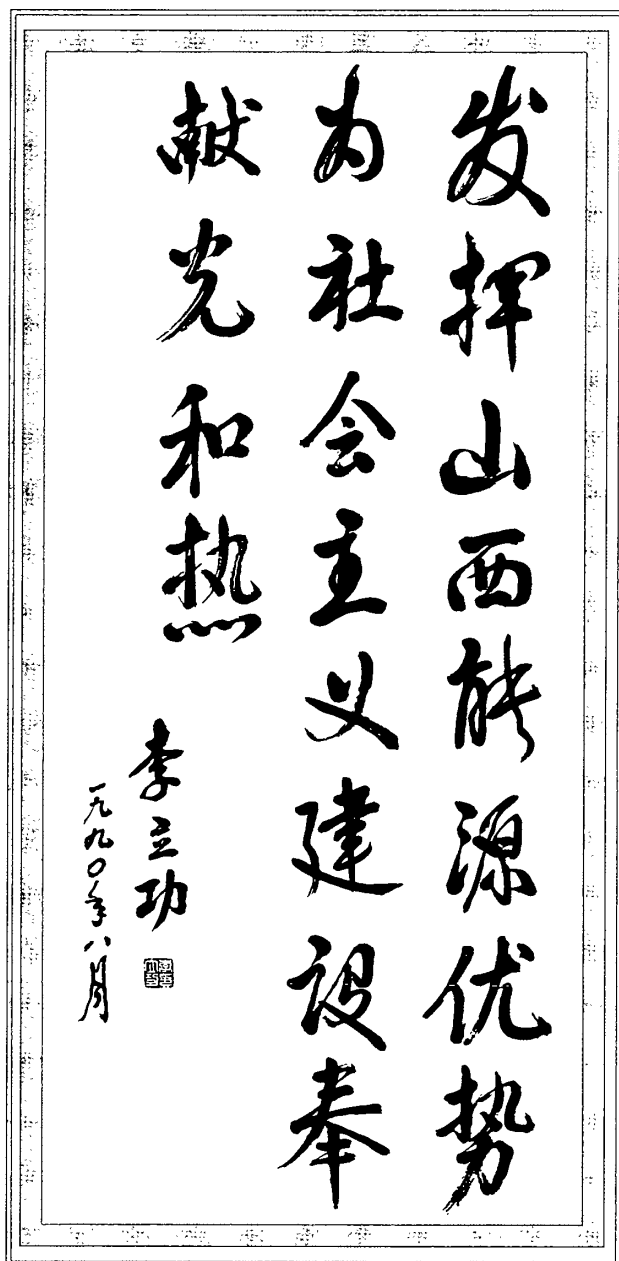 发挥山西能源优势
为社会主义建设奉
献光和热
李立功
一九九〇年八月